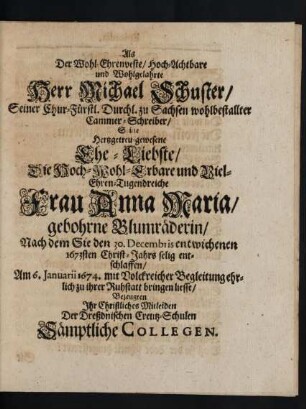 Als
Der Wohl-Ehrenveste/ Hoch-Achtbare
und Wohlgelahrte
Herr Michael Schuster/
Seiner Chur-Fürstl. Durchl. zu Sachsen wohlbestallter
Cammer-Schreiber/
Seine
Hertzgetreu-gewesene
Ehe-Liebste/
Die Hoch-Wohl-Erbare und Viel-
Ehren-Tugendreiche
Frau Anna Maria/
gebohrne Blumräderin/
Nach dem Sie den 30. Decembris entwichenen
1673sten Christ-Jahrs selig ent-
schlaffen/
Am 6. Januarii 1674. mit Volckreicher Begleitung ehr-
lich zu ihrer Ruhstatt bringen liesse/
Bezeugten
Ihr Christliches Mitleiden
Der Dreßdnischen Creutz-Schulen
Sämptliche COLLEGEN.